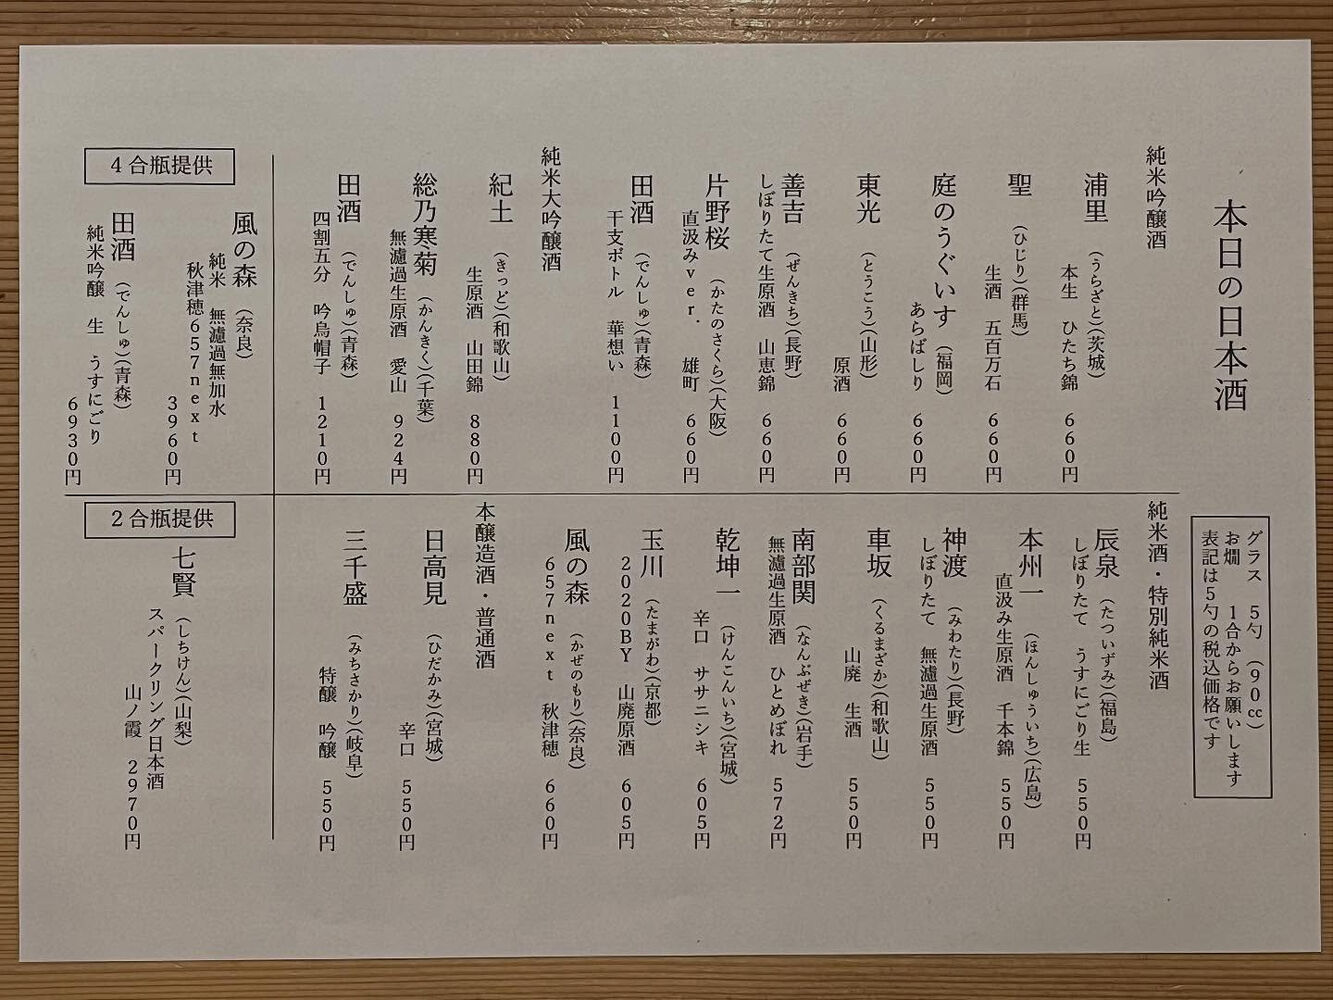 本日の日本酒
グラス　5勺　(90cc)
お燗　1合からお願いします
表記は5勺の税込価格です
純米吟醸酒
浦里　(うらざと)(茨城)
本生　ひたち錦　660円
聖　(ひじり)(群馬)
生酒　五百万石　660円
庭のうぐいす　(福岡)
あらばしり　660円
東光　(とうこう)(山形)
原酒　660円
善吉　(ぜんきち)(長野)
しぼりたて生原酒　山恵錦　660円
片野桜　(かたのさくら)(大阪)
直汲みver.　雄町　660円
田酒　(でんしゅ)(青森)
干支ボトル　華想い　1100円
純米大吟醸酒
紀土　(きっど)(和歌山)
生原酒　山田錦　880円
総乃寒菊　(かんきく)(千葉)
無濾過生原酒　愛山　924円
田酒　(でんしゅ)(青森)
四割五分　吟烏帽子　1210円
純米酒・特別純米酒
辰泉　(たついずみ)(福島)
しぼりたて　うすにごり生　550円
本州一　(ほんしゅういち)(広島)
直汲み生原酒　千本錦　550円
神渡　(みわたり)(長野)
しぼりたて　無濾過生原酒　550円
車坂　(くるまざか)(和歌山)
山廃　生酒　550円
南部関　(なんぶぜき)(岩手)
無濾過生原酒　ひとめぼれ　572円
乾坤一　(けんこんいち)(宮城)
辛口　ササニシキ　605円
玉川　(たまがわ)(京都)
2020BY　山廃原酒　605円
風の森　(かぜのもり)(奈良)
657next　秋津穂　660円
本醸造酒・普通酒
日高見　(ひだかみ)(宮城)
辛口　550円
三千盛　(みちさかり)(岐阜)
特醸　吟醸　550円
4合瓶提供
風の森　(奈良)
純米　無濾過無加水
秋津穂657next
3960円
田酒　(でんしゅ)(青森)
純米吟醸　生　うすにごり
6930円
2合瓶提供
七賢　(しちけん)(山梨)
スパークリング日本酒
山ノ霞　2970円